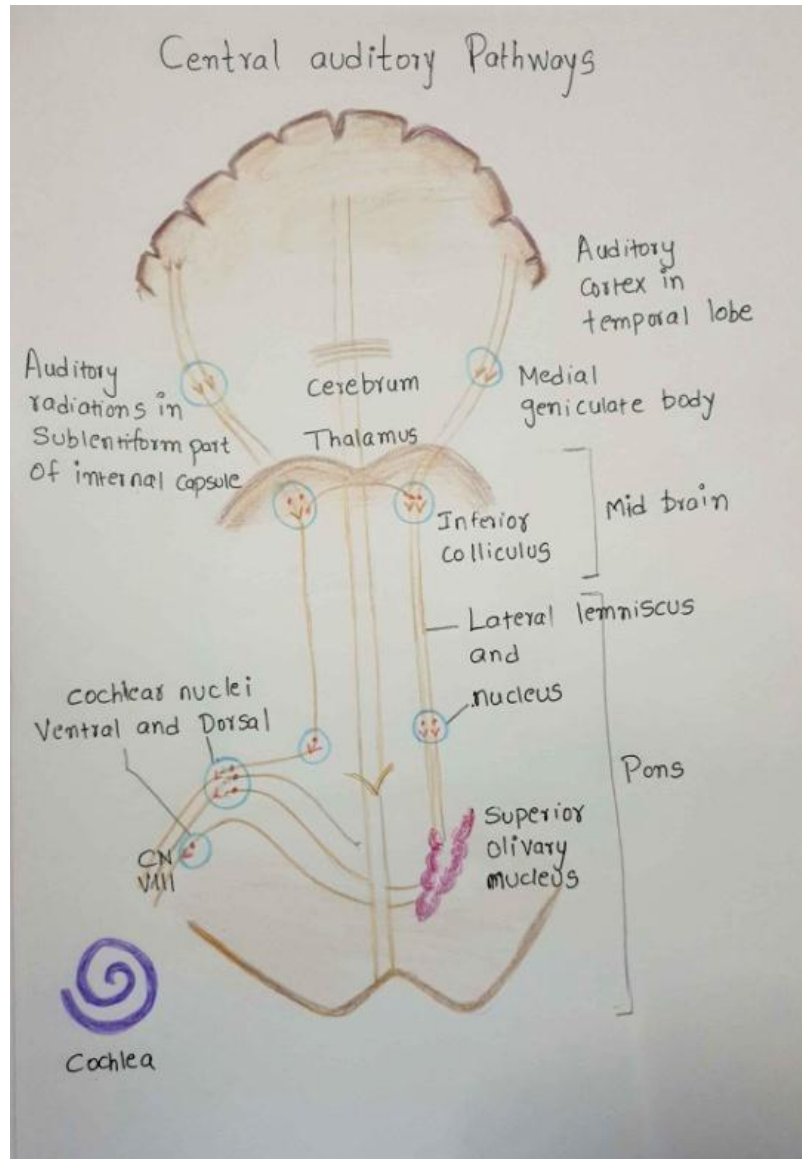 Central auditory Pathways
Auditory
cortex in
temporal lobe
Auditory
radiations in
Sublentiform part
of internal capsule
cerebrum
Thalamus
Medial
geniculate body
Inferior
colliculus
Mid brain
Lateral lemniscus
and
nucleus
cochlear nuclei
Ventral and Dorsal
Pons
Superior
olivary
mucleus
CN
VIII
Cochlea